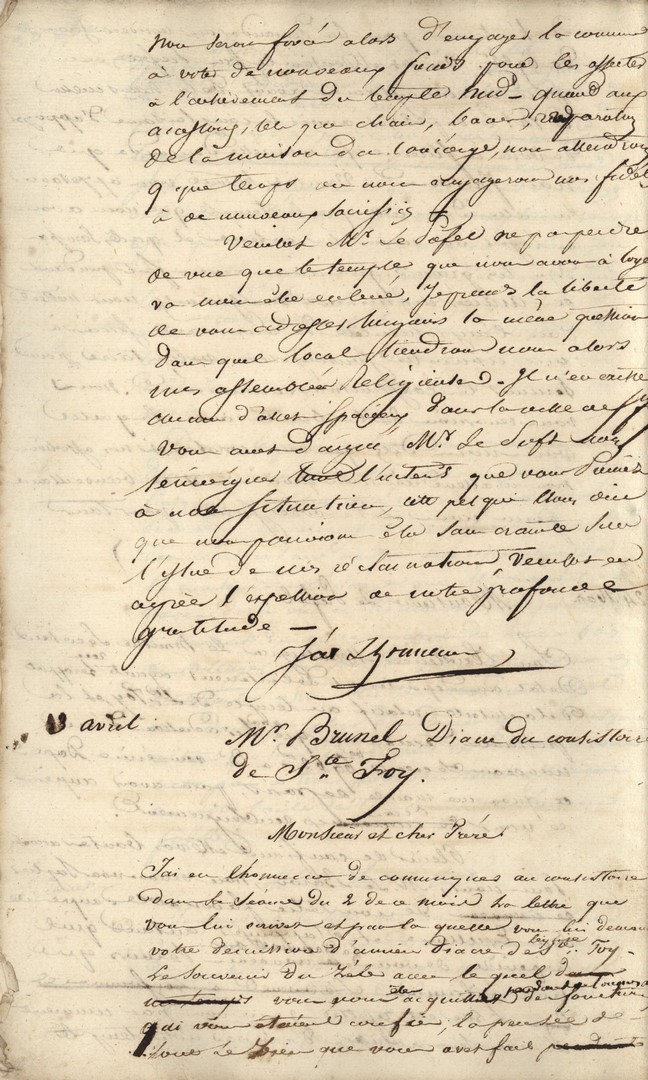 nous serons forcés alors d'engager la commune
à voter de nouveaux fonds pour les affecter
à l'achèvement du temple quand aux
accessoires, tels que chaire, bancs, réparations
de la maison du concierge, nous attendrons
q que temps ou nous engagerons nos fidèles
à de nouveaux sacrifices
Veuillez Mr. Le Préfet ne pas perdre
de vue que le temple que nous avons à loyer
va nous être enlevé, je prends la liberté
de vous adresser toujours la même question
dans quel local tiendrons nous alors
nos assemblées Religieuses. Il n'en existe
aucun d'assez spacieux dans la ville de Ste
Vous avez daigné Mr. Le Préfet nous
témoigner l'intérêt que vous prenez
à notre situation, c'est
que nous pouvions être sans crainte sur
l'issue de nos réclamations, Veuillez en
agréer l'expression de notre profonde
gratitude —
13 avril
Mr. Brunel Diacre du consistoire
de Ste. Foy.
Monsieur et cher Frère
J'ai eu l'honneur de communiquer au consistoire
dans la Séance du 2 de ce mois la lettre que
vous lui écrivez et par la quelle vous lui demandez
votre démission d'ancien Diacre de l'église Ste. Foy.
Le Souvenir du Zèle avec le quel dans
vous vous acquittiez pendant de fonctions
qui vous étaient confiées, la pensée de
tout le bien que vous avez fait pendant